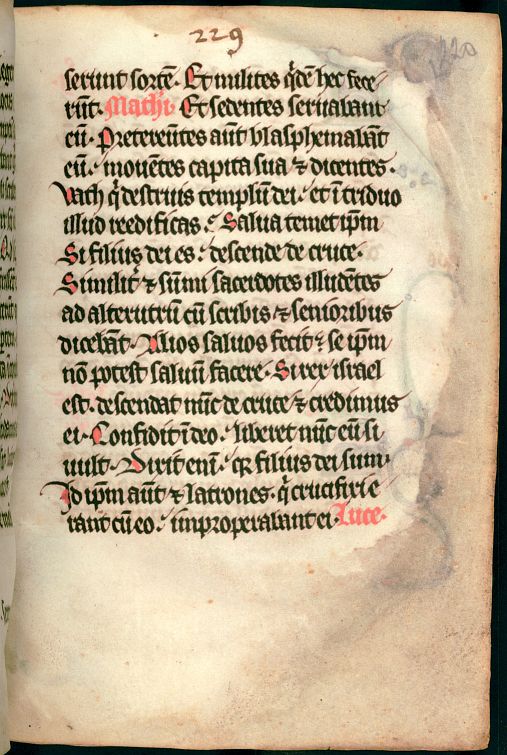 229
220
serunt sortē. Et milites q̇dē hec fece
rūt. Mathī. Et sedentes seruabant
eū. Pretereūtes aūt blasphemabāt
eū. mouētes capita sua ⁊ dicentes.
Vach q̇ destruis templū dei. et ī triduo
illud reedificas. Salua temetip̄m
Si filius dei es. descende de cruce.
Similit᷒ ⁊ sūmi sacerdotes illudētes
ad alterutrū cū scribis ⁊ senioribus
dicebāt. Alios saluos fecit. se ip̄m
nō potest saluū facere. Si rex israel
est. descendat nūc de cruce ⁊ credimus
ei. Confidit ī deo. liberet nūc eū si
uult. Dixit enī. qꝛ filius dei sum.
Id ip̄m aūt ⁊ latrones. q̇ crucifixi e
rant cū eo. improperabant ei. Luce.